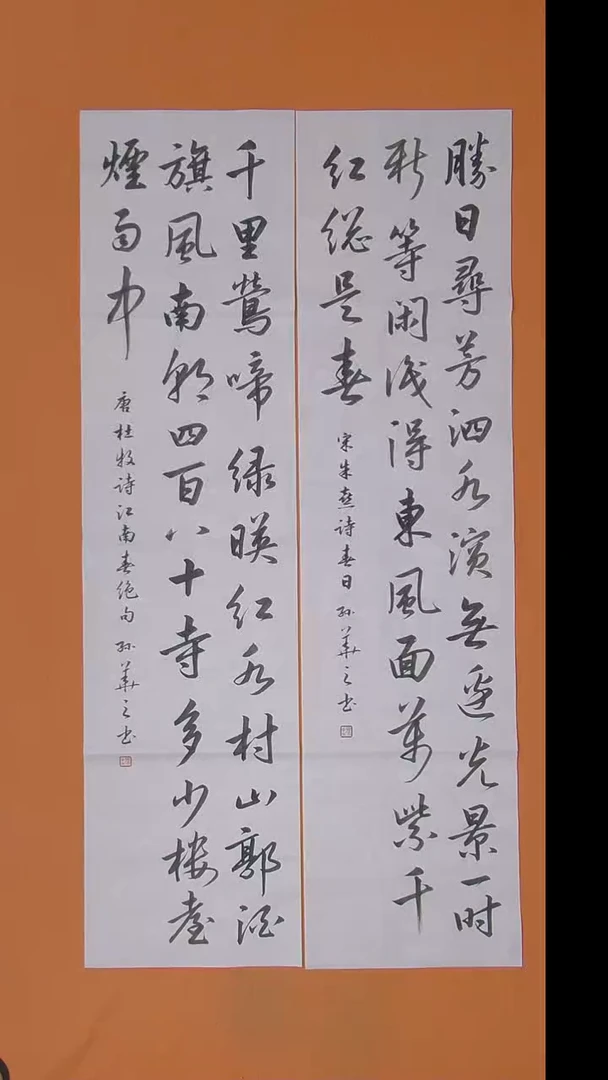 勝日尋芳泗水濱無邊光景一时
新等闲識得東風面萬紫千
红總是春
宋朱熹诗春日 孙華之书
千里鶯啼绿暎红水村山郭酒
旗風南朝四百八十寺多少樓臺
煙雨中
唐杜牧诗江南春绝句 孙華之书